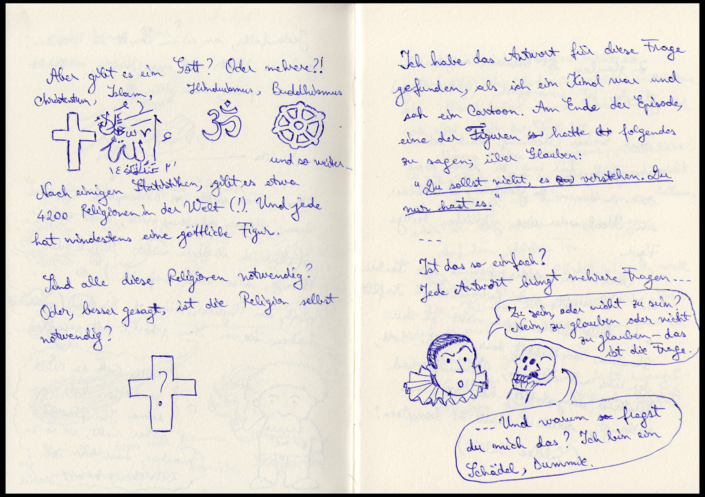 Aber gibt es ein Gott? Oder mehrere?!
Christentum, Islam, Hinduismus, Buddhismus
ॐ
und so weiter--
Nach einigen Statistiken, gibt es etwa
4200 Religionen in der Welt (!). Und jede
hat mindestens eine göttliche Figur.
Sind alle diese Religionen notwendig?
Oder, besser gesagt, ist die Religion selbst
notwendig?
?
Ich habe das Antwort für diese Frage
gefunden, als ich ein Kind war und
sah ein Cartoon. Am Ende der Episode,
eine der Figuren hatte folgendes
zu sagen, über Glauben:
"Du sollst nicht, es verstehen. Du
nur hast es."
---
Ist das so einfach?
Jede Antwort bringt mehrere Fragen---
Zu sein, oder nicht zu sein?
Nein, zu glauben oder nicht
zu glauben - das
ist die Frage.
--- Und warum fragst
du mich das? Ich bin ein
Schädel, Dummie.